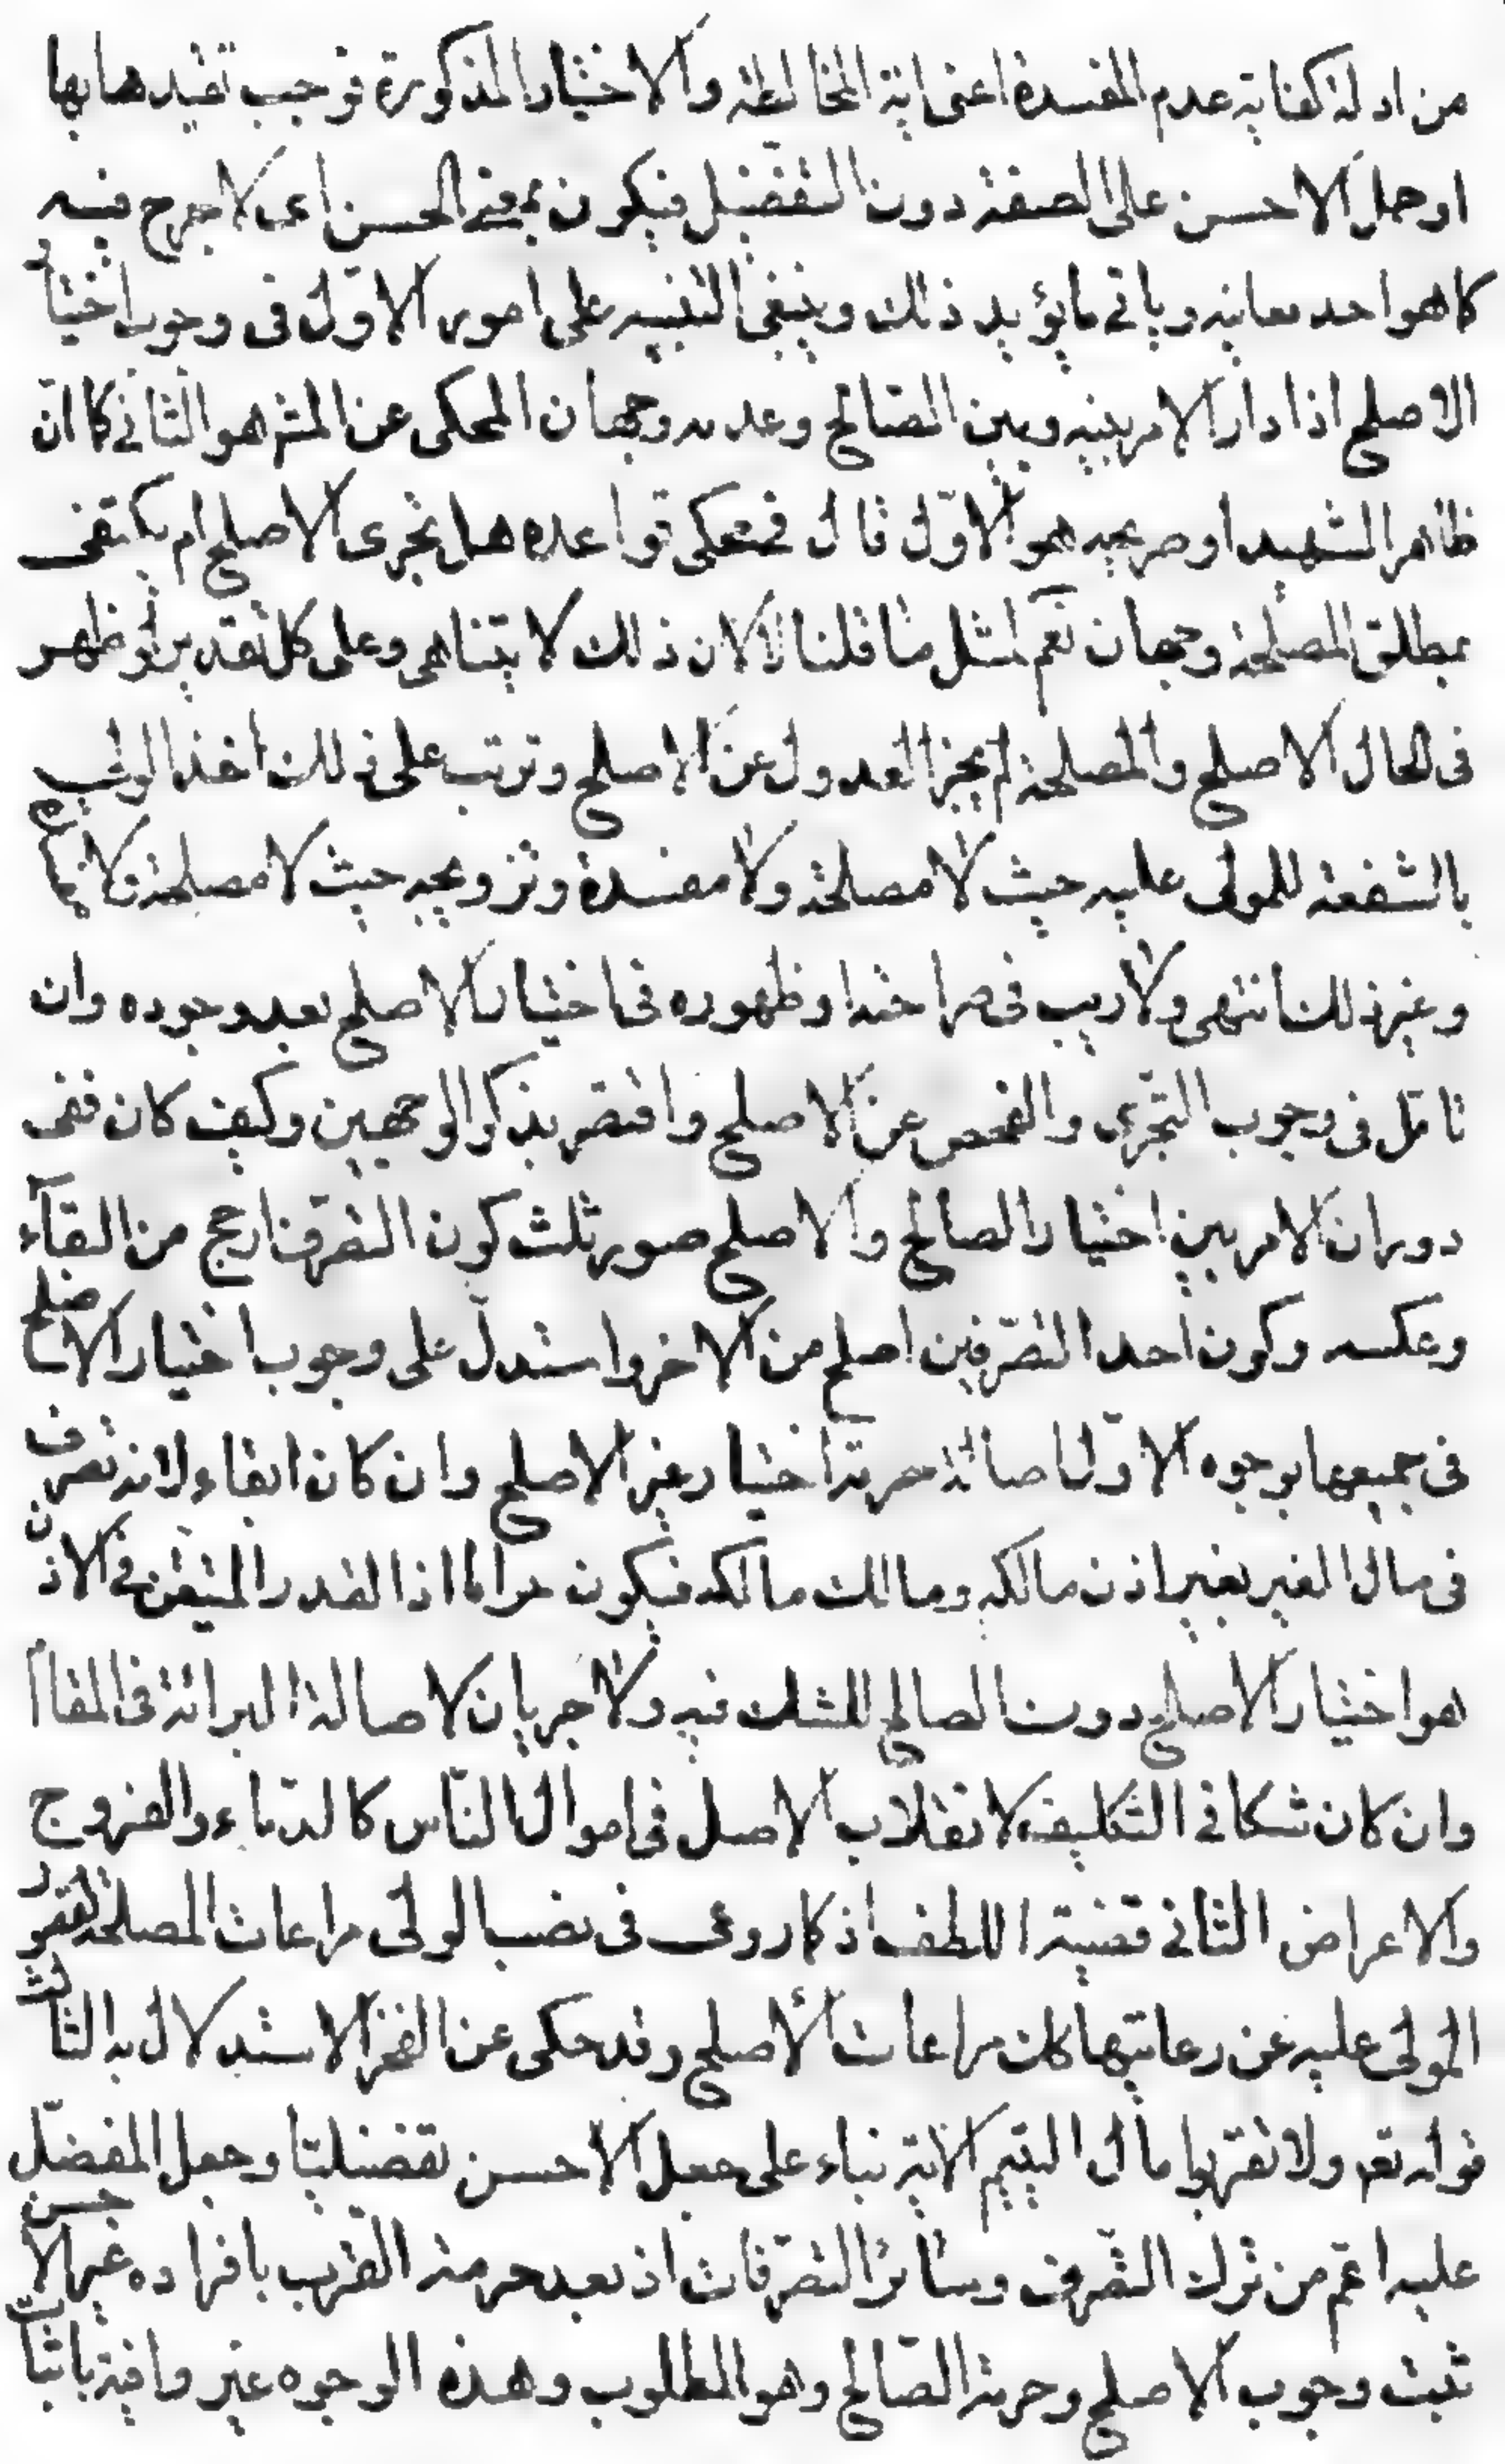 من ادلة كفاية عدم المفسدة اعنى اية المخالطة والاختيار المذكورة توجب تقيدها بها
او حمل الاحسن على الصفة دون التفضيل فيكون بمعنى الحسن اى لا حرج فيه
كما هو احد معانيه وياتى ما يؤيد ذلك وينبغى التنبيه على امور الاوّل فى وجوب اختيار
الاصلح اذا دار الامر بينه وبين الصّالح وعدمه وجهان المحكى عن المش هو الثانى كما انّ
ظاهر الشهيد او صريحه هو الاوّل قال فى محكى قواعده هل يتحرى الاصلح ام يكتفى
بمطلق المصلحة وجهان نعم لمثل ما قلنا لا لان ذلك لا يتناهى وعلى كل تقدير لو ظهر
فى الحال الاصلح والمصلحة لم يجز العدول عن الاصلح وترتب على ذلك اخذ الولى
بالشفعة للمولى عليه حيث لا مصلحة ولا مفسدة وتزويجه حيث لا مصلحة ولا مفسدة
وغير ذلك انتهى ولا ريب فى صراحته او ظهوره فى اختيار الاصلح بعد وجوده وان
تامّل فى وجوب التحرّى والفحص عن الاصلح واقتصر بذكر الوجهين وكيف كان ففى
دوران الامر بين اختيار الصالح والاصلح صور ثلث كون التصرف ارجح من البقآء
وعكسه وكون احد التصرّفين اصلح من الاخر واستدلّ على وجوب اختيار الاصلح
فى جميعها بوجوه الاوّل اصالة حرمة اختيار غير الاصلح وان كان ابقاء لانه تصرف
فى مال الغير بغير اذن مالكه ومالك مالكه فيكون حراما اذا القدر المتيقن فى الاذن
هو اختيار الاصلح دون الصالح للشك فيه ولا جريان لاصالة البرائة فى المقام
وان كان شكا فى التكليف لانقلاب الاصل فى اموال النّاس كالدّماء والفروج
والاعراض الثانى قضية اللطف اذ كما روعى فى نصب الولىّ مراعات المصلحة لقصور
المولىّ عليه عن رعايتها كك مراعات الأصلح وقد حكى عن الفخر الاستدلال به الثالث
قوله تعم ولا تقربوا مال اليتيم الاية بناء على جعل الاحسن تفضيليّا وجعل المفضّل
عليه اعمّ من ترك التّصرف وسائر التصرّفات اذ بعد حرمة القرب بافراده غير الاحسن
تثبت وجوب الاصلح وحرمة الصّالح وهو المطلوب وهذه الوجوه غير وافية باثبات